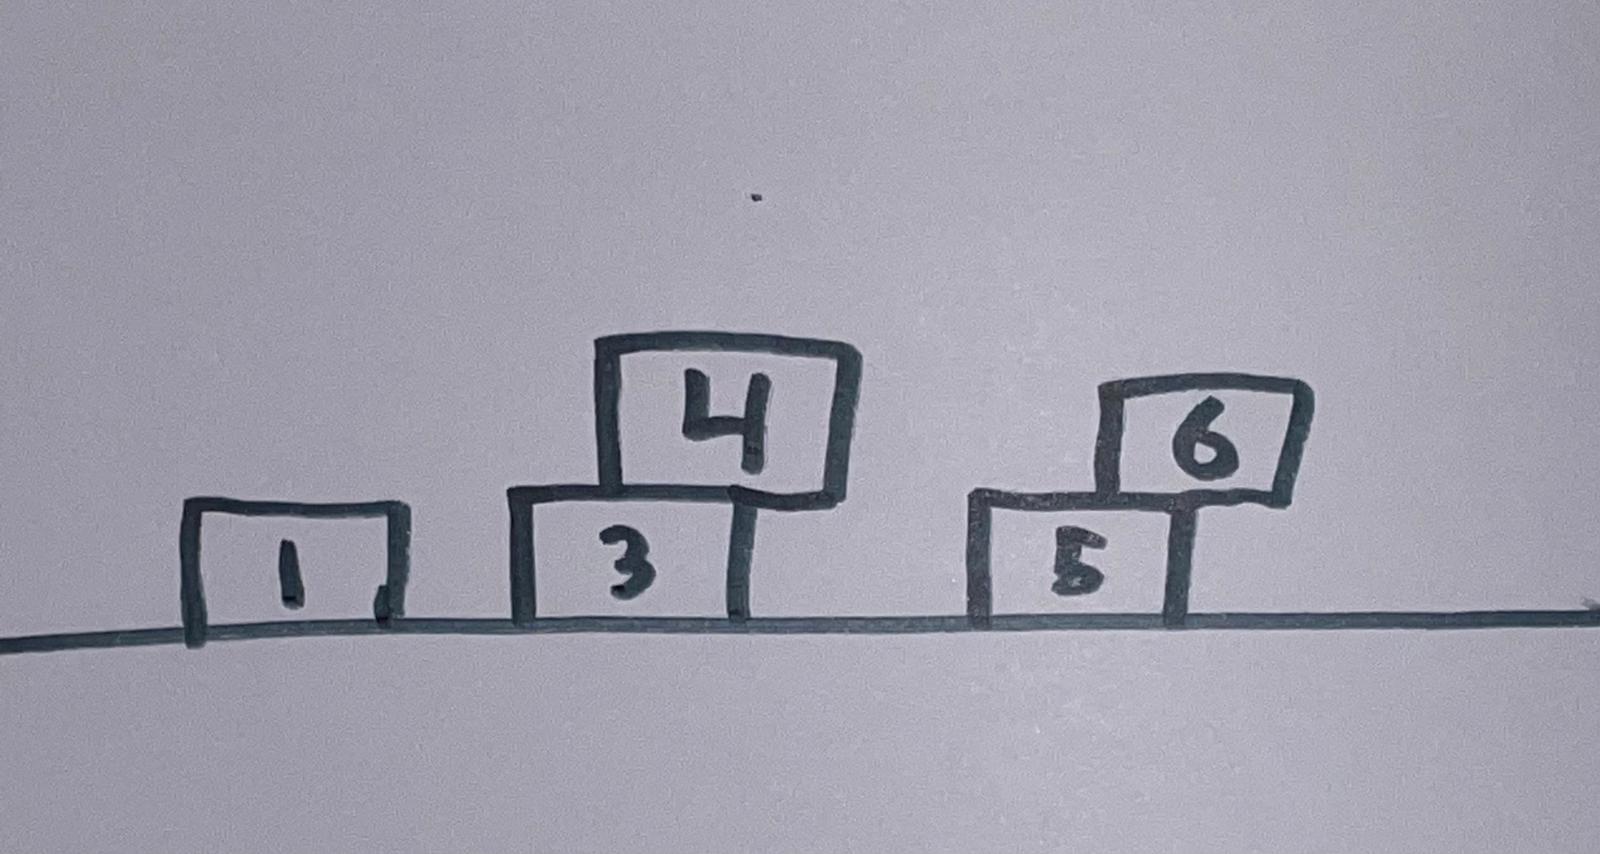 4 6
1 3 5